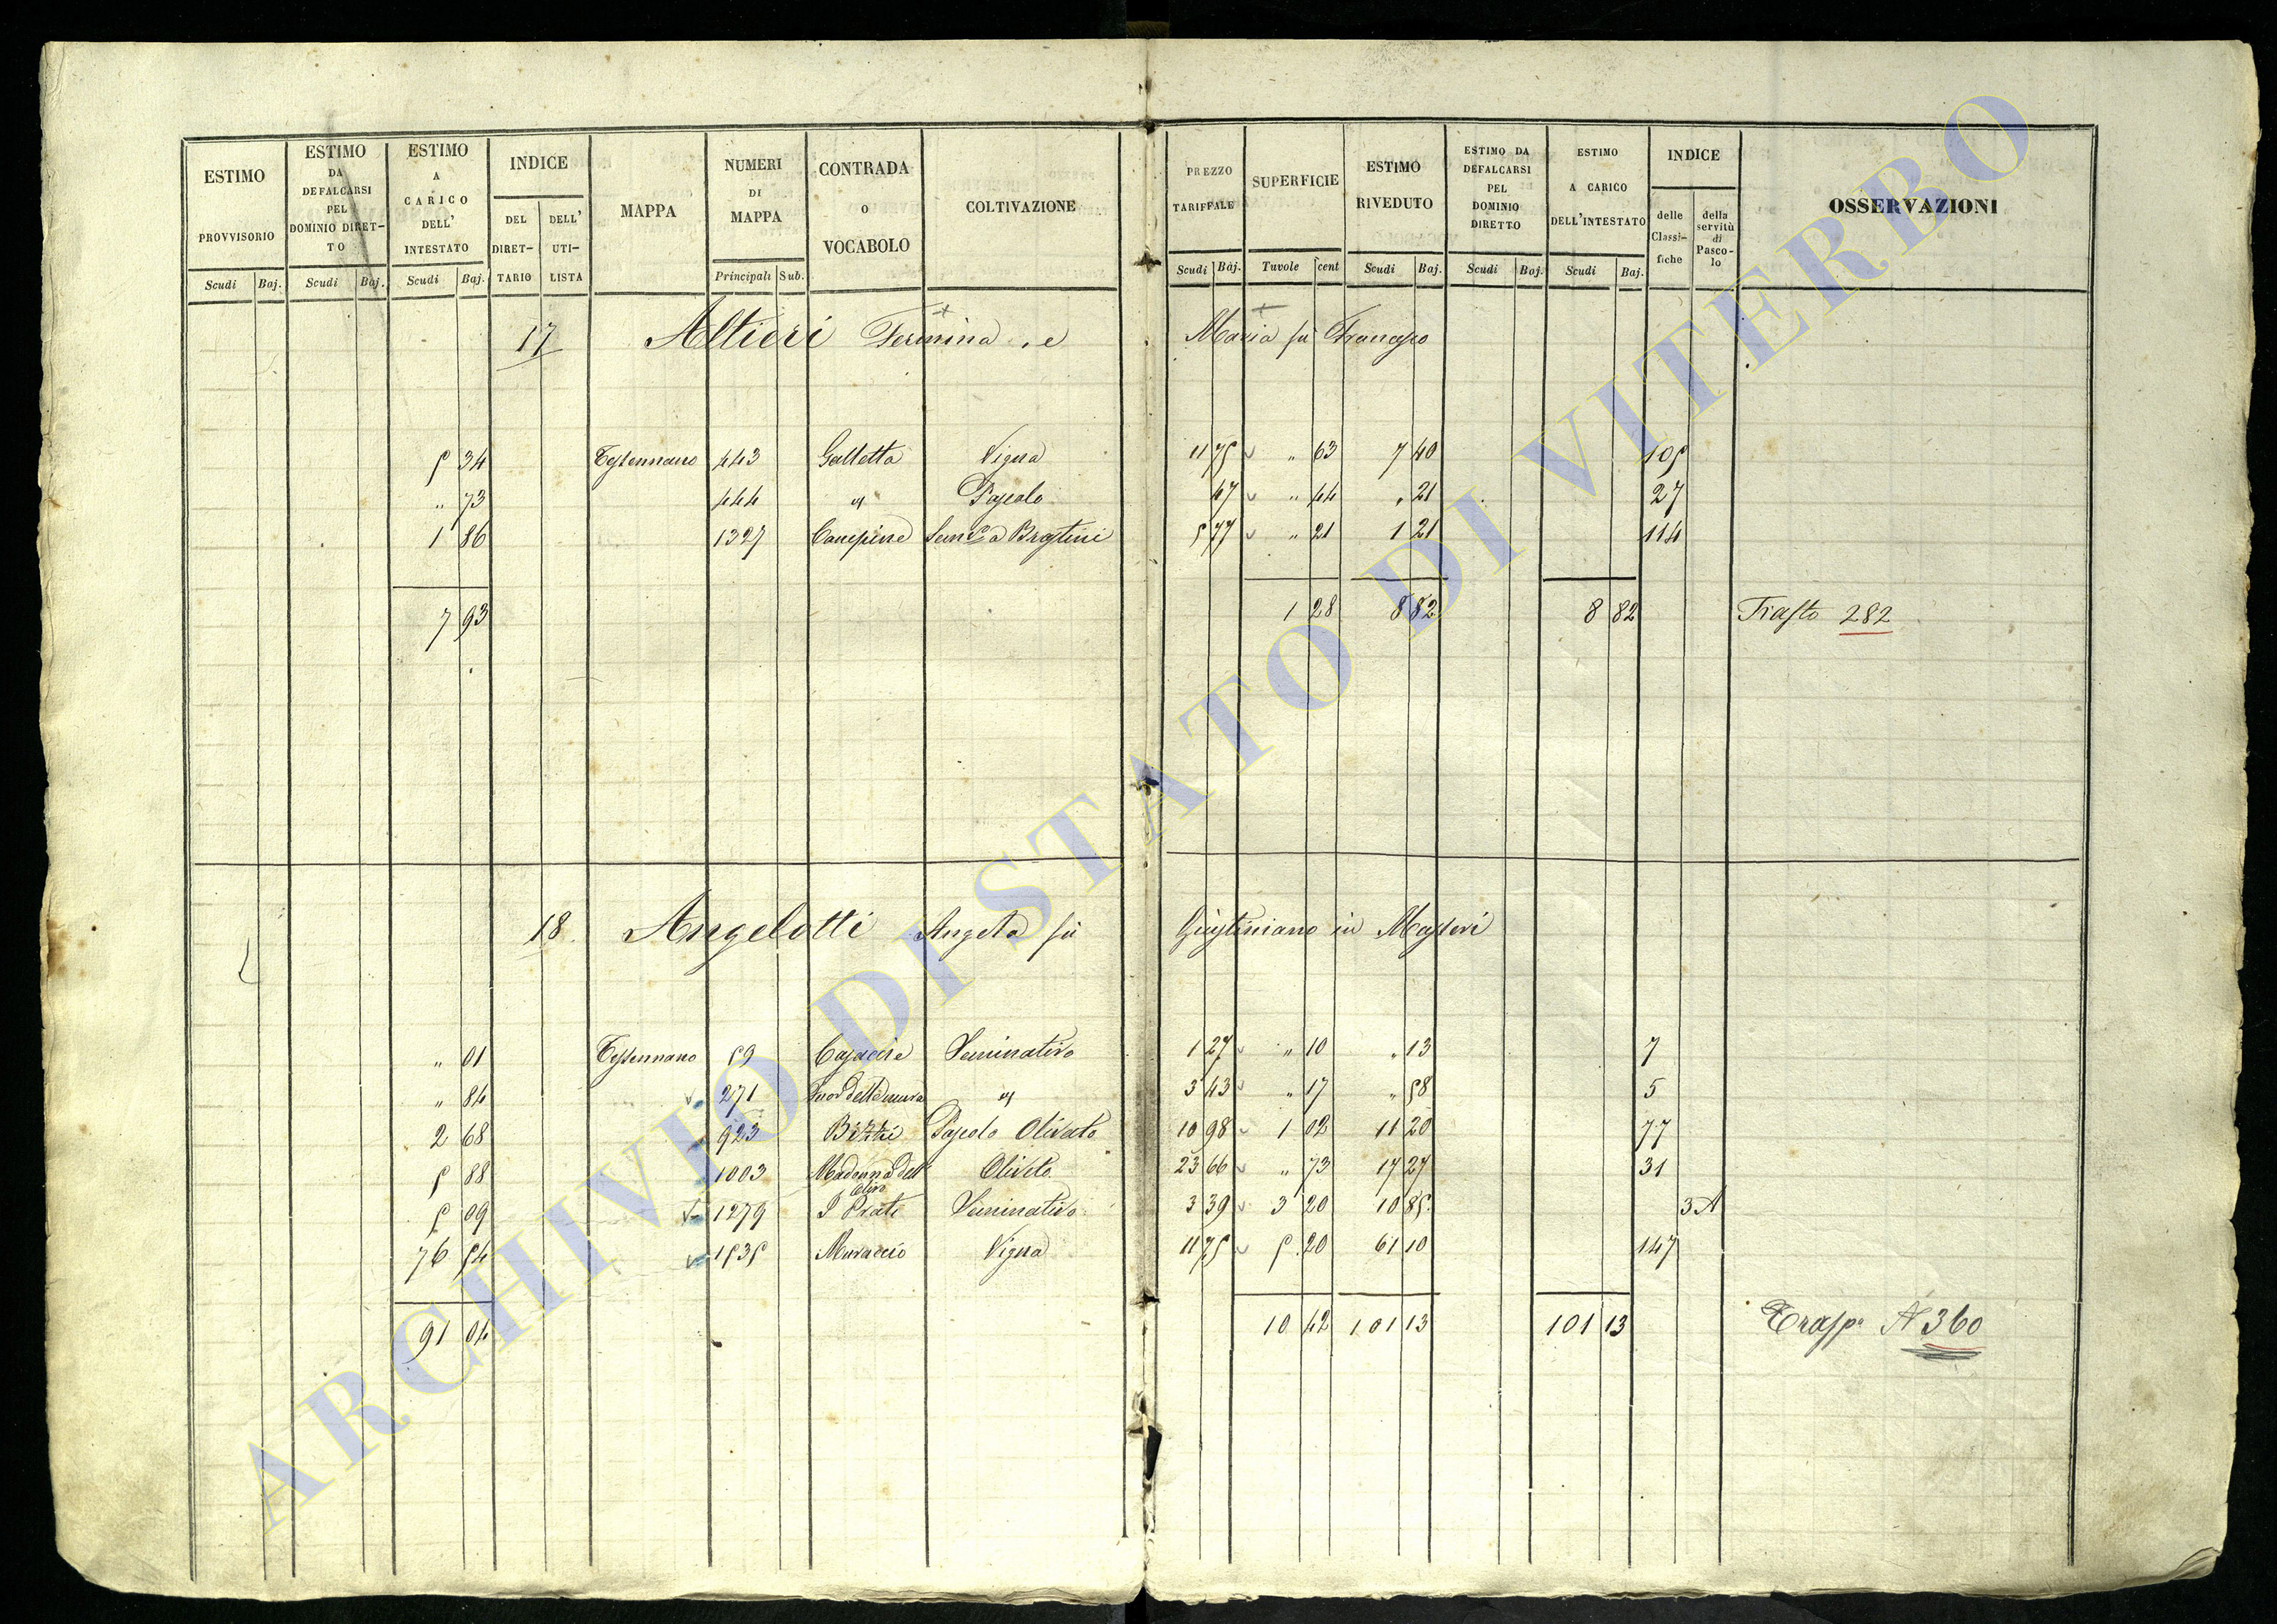 ESTIMO PROVVISORIO Scudi Baj.
ESTIMO DA DEFALCARSI PEL DOMINIO DIRETTO Scudi Baj.
ESTIMO A CARICO DELL' INTESTATO Scudi Baj.
INDICE DEL DIRETTARIO DELL' UTILISTA
MAPPA
NUMERI DI MAPPA Principali Sub.
CONTRADA O VOCABOLO
COLTIVAZIONE
PREZZO TARIFFALE Scudi Baj.
SUPERFICIE Tavole cent
ESTIMO RIVEDUTO Scudi Baj.
ESTIMO DA DEFALCARSI PEL DOMINIO DIRETTO Scudi Baj.
ESTIMO A CARICO DELL'INTESTATO Scudi Baj.
INDICE delle Classifiche della servitù di Pascolo
OSSERVAZIONI
17 Altieri Fermina, e Maria fu Francesco
5 34 Tessennano 443 Galletta Vigna 11 75 " 63 7 40 105
" 73 444 " Pascolo 47 " 44 " 21 27
1 86 1327 Canepine 5 77 " 21 1 21 114
7 93 1 28 8 82 8 82 Trasto 282
18. Angelotti Angela fu Giustiniano in Masseri
" 01 Tessennano 59 Casaccie Seminativo 1 27 " 10 " 13 7
" 84 271 Fuor delle mura " 3 43 " 17 " 58 5
2 68 923 Pascolo Olivato 10 98 1 02 11 20 77
5 88 1003 Madonna dell' Olivo Oliveto 23 66 " 73 17 27 31
5 09 1279 I Prati Seminativo 3 39 3 20 10 85 3A
76 54 1535 Muraccio Vigna 11 75 5 20 61 10 147
91 04 10 42 101 13 101 13 Trasp. N 360
ARCHIVIO DI STATO DI VITERBO